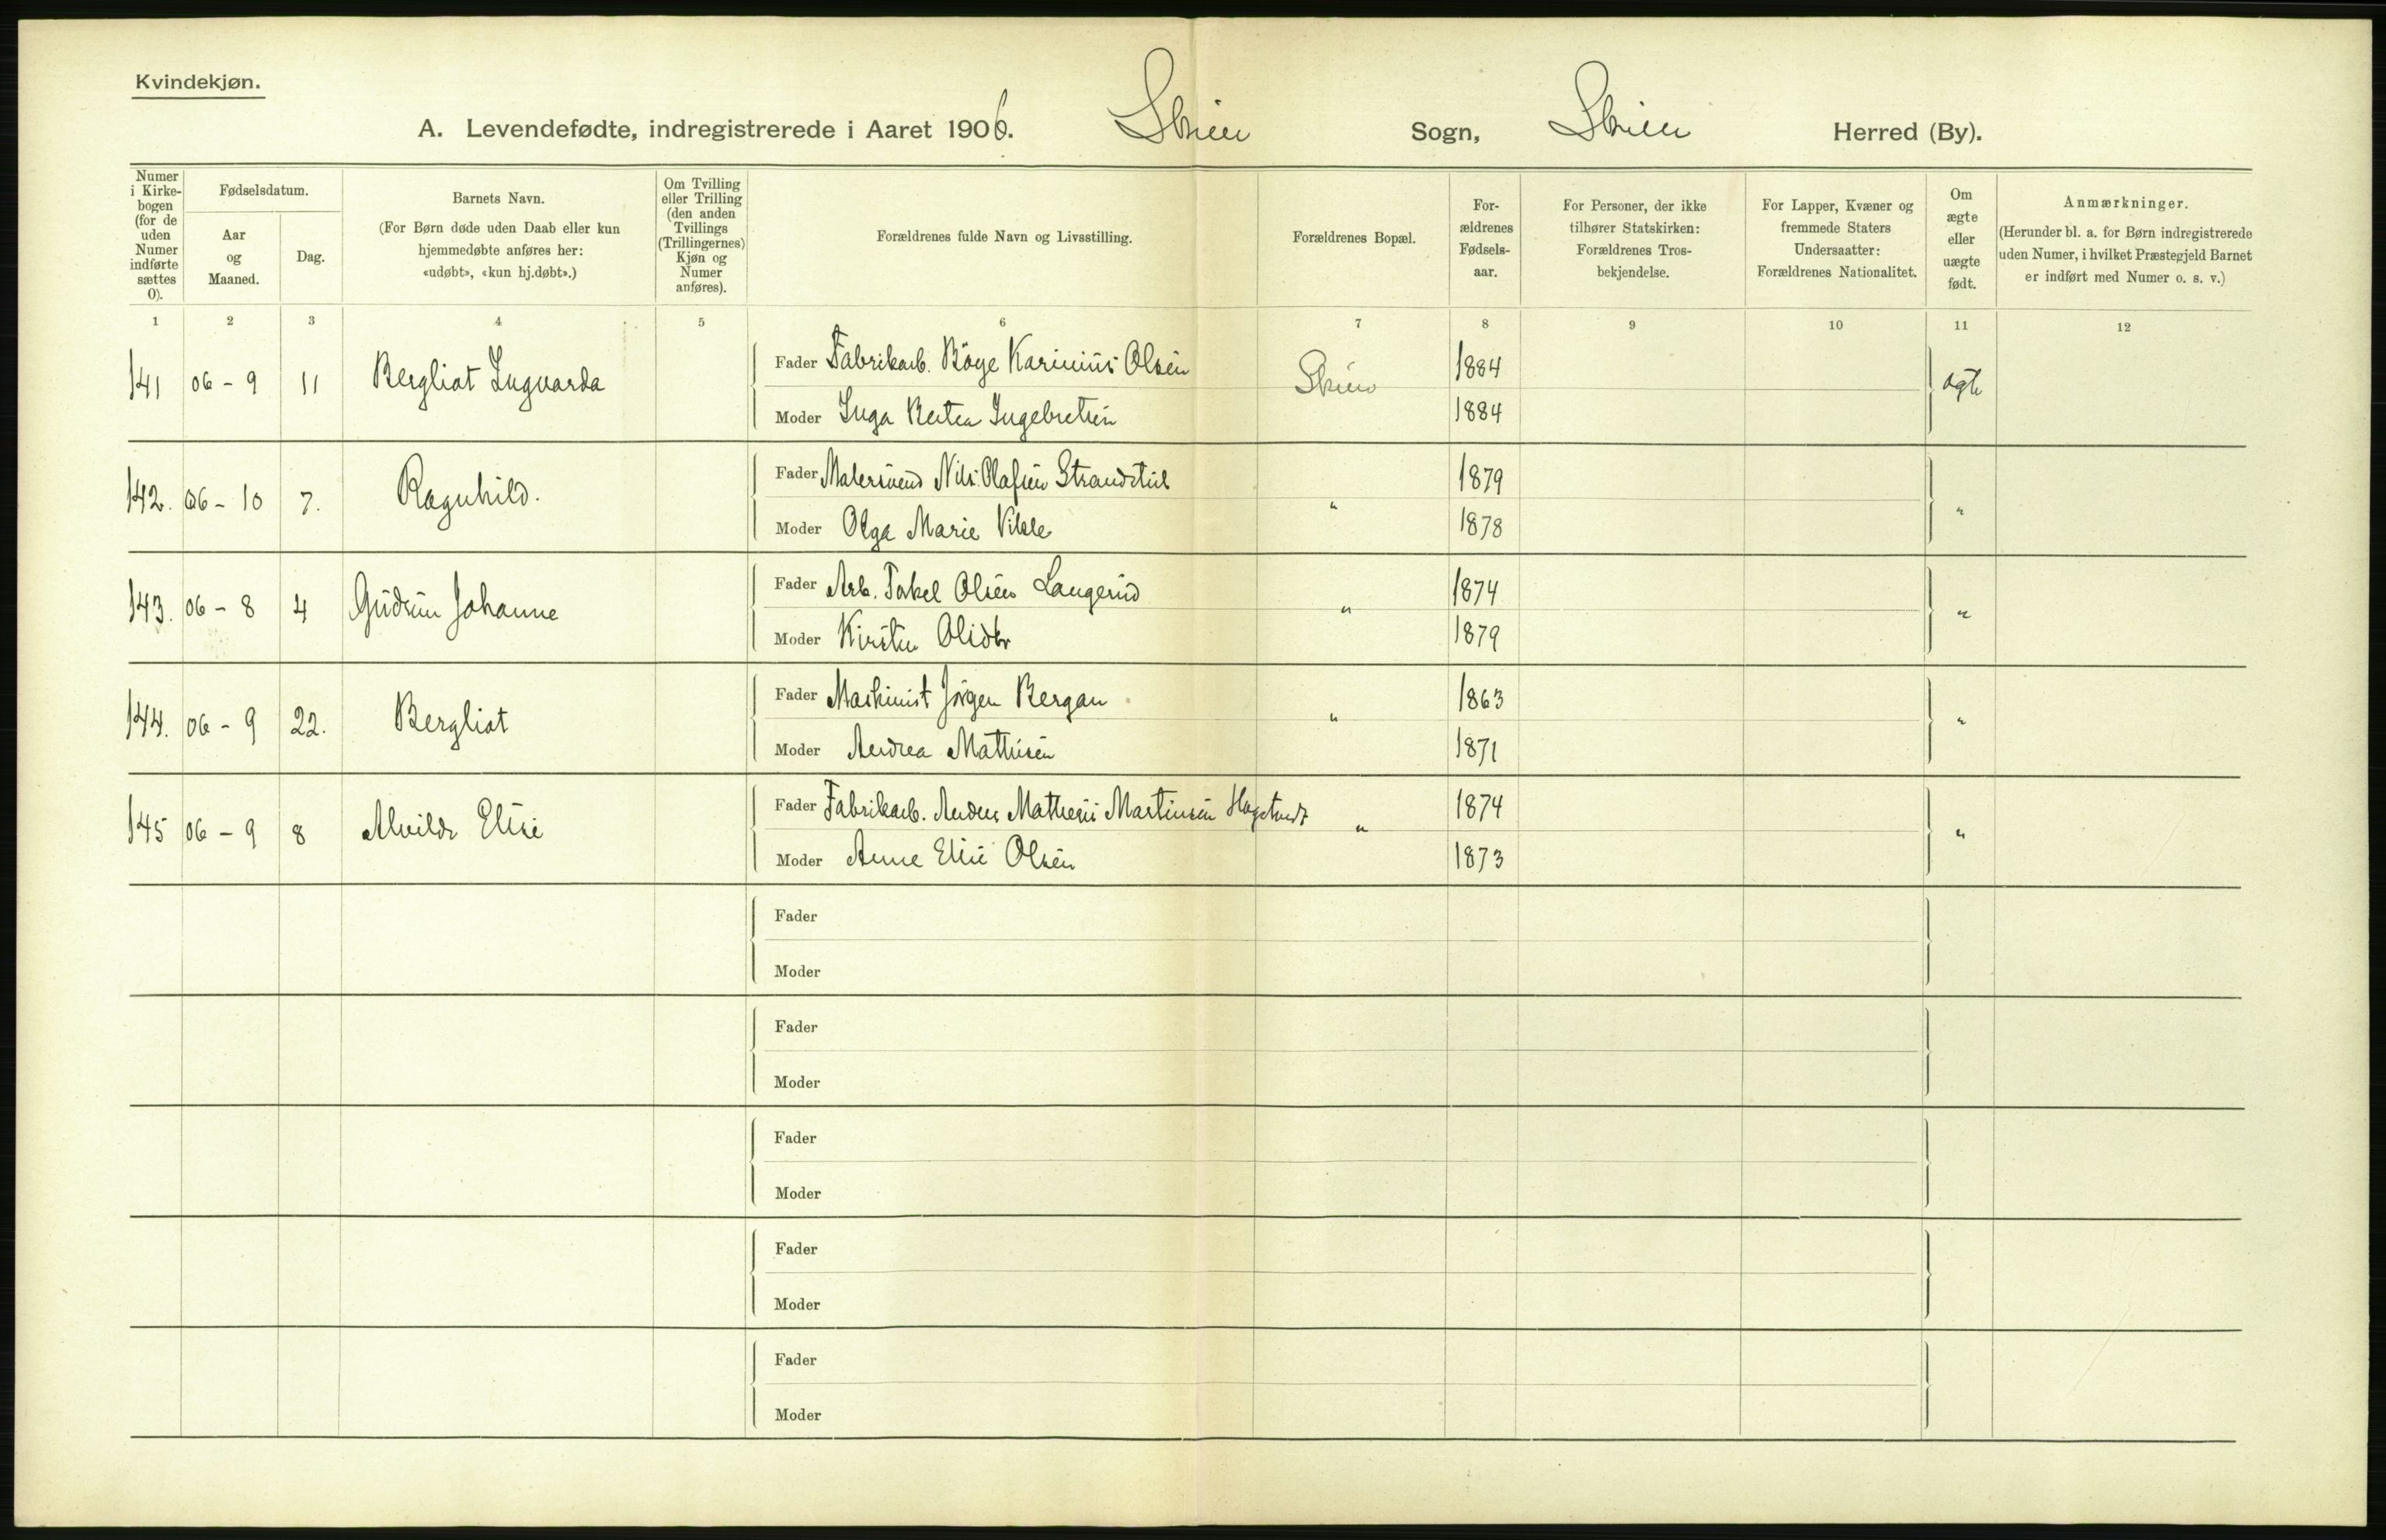 Kvindekjøn.
A. Levendefødte, indregistrerede i Aaret 1906. Skien Sogn, Skien Herred (By).
Numer i Kirkebogen (for de uden Numer indførte sættes 0).
Fødselsdatum.
Aar og Maaned.
Dag.
Barnets Navn.
(For Børn døde uden Daab eller kun hjemmedøbte anføres her: «udøbt», «kun hj.døbt».)
Om Tvilling eller Trilling (den anden Tvillings (Trillingernes) Kjøn og Numer anføres).
Forældrenes fulde Navn og Livsstilling.
Forældrenes Bopæl.
For-ældrenes Fødsels-aar.
For Personer, der ikke tilhører Statskirken: Forældrenes Tros-bekjendelse.
For Lapper, Kvæner og fremmede Staters Undersaatter: Forældrenes Nationalitet.
Om ægte eller uægte født.
Anmærkninger.
(Herunder bl. a. for Børn indregistrerede uden Numer, i hvilket Præstegjeld Barnet er indført med Numer o. s. v.)
1 2 3 4 5 6 7 8 9 10 11 12
141 06 - 9 11 Bergliot Ingvarda Fader Fabrikarb. Karinius Olsen Skien 1884 ægte
Moder Inga Ingebretsen 1884
142. 06 - 10 7. Ragnhild. Fader Malersvend Nils Olafsen " 1879 "
Moder Olga Marie 1878
143. 06 - 8 4 Gudrun Johanne Fader Arb. Olsen Langerud " 1874 "
Moder Kirsten 1879
144. 06 - 9 22. Bergliot Fader Maskinist Jörgen Bergan " 1863 "
Moder Andrea Mathisen 1871
145 06 - 9 8 Alvilde Elise Fader Fabrikarb. Anders Martinsen " 1874 "
Moder Anne Elise Olsen 1873
Fader
Moder
Fader
Moder
Fader
Moder
Fader
Moder
Fader
Moder